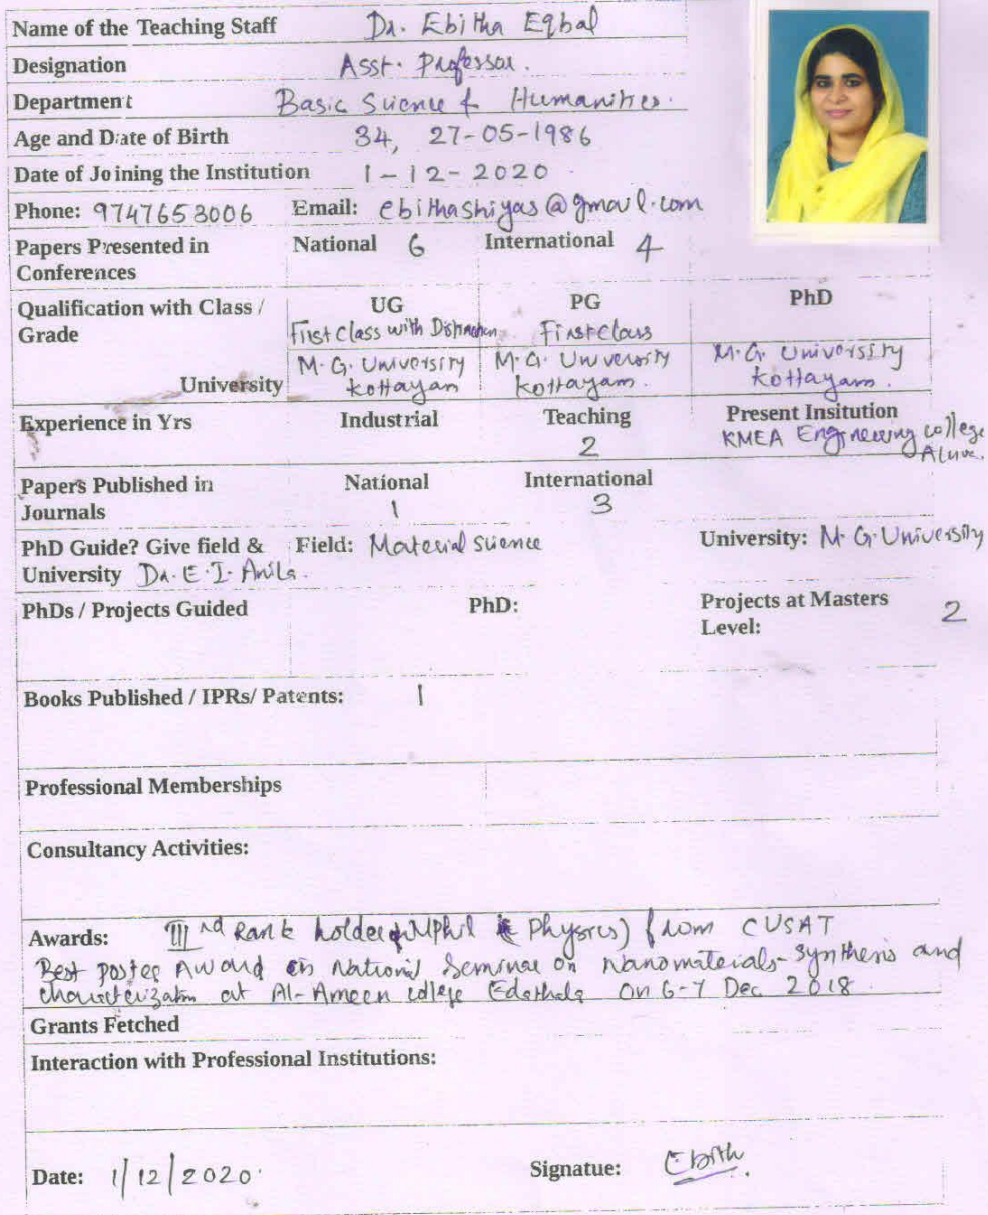 Name of the Teaching Staff Dr. Ebitha Eqbal
Designation Asst. Professor.
Department Basic Science & Humanities.
Age and Date of Birth 34, 27-05-1986
Date of Joining the Institution 1-12-2020
Phone: 9747653006 Email: ebithashiyas@gmail.com
Papers Presented in National 6 International 4
Conferences
Qualification with Class / UG PG PhD
Grade First Class with Distinction First Class
M.G. University M.G. University M.G. University
University Kottayam Kottayam. Kottayam.
Experience in Yrs Industrial Teaching Present Insitution
2 KMEA Engineering college
Aluva.
Papers Published in National International
Journals 1 3
PhD Guide? Give field & Field: Material Science University: M.G. University
University Dr. E.I. Anila.
PhDs / Projects Guided PhD: Projects at Masters 2
Level:
Books Published / IPRs/ Patents: 1
Professional Memberships
Consultancy Activities:
Awards: III rd Rank holder (MPhil Physics) from CUSAT
Best poster Award in National Seminar on Nanomaterials-Synthesis and
characterization at Al-Ameen college Edathala on 6-7 Dec 2018.
Grants Fetched
Interaction with Professional Institutions:
Date: 1/12/2020. Signatue: Ebith